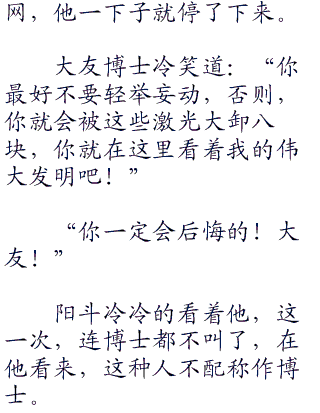 网，他一下子就停了下来。
大友博士冷笑道：“你
最好不要轻举妄动，否则，
你就会被这些激光大卸八
块，你就在这里看着我的伟
大发明吧！”
“你一定会后悔的！大
友！”
阳斗冷冷的看着他，这
一次，连博士都不叫了，在
他看来，这种人不配称作博
士。